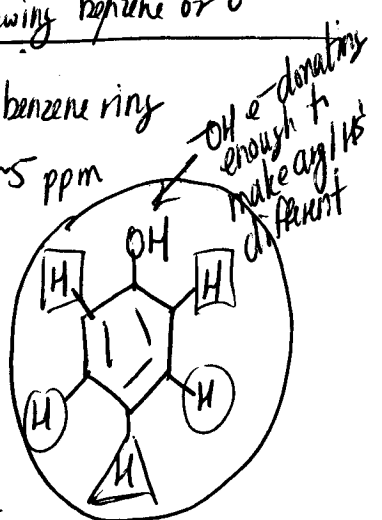 wing benzene or
benzene ring
~5 ppm
OH e⁻ donating
enough to
make aryl H's
different
OH
H H
H H
H